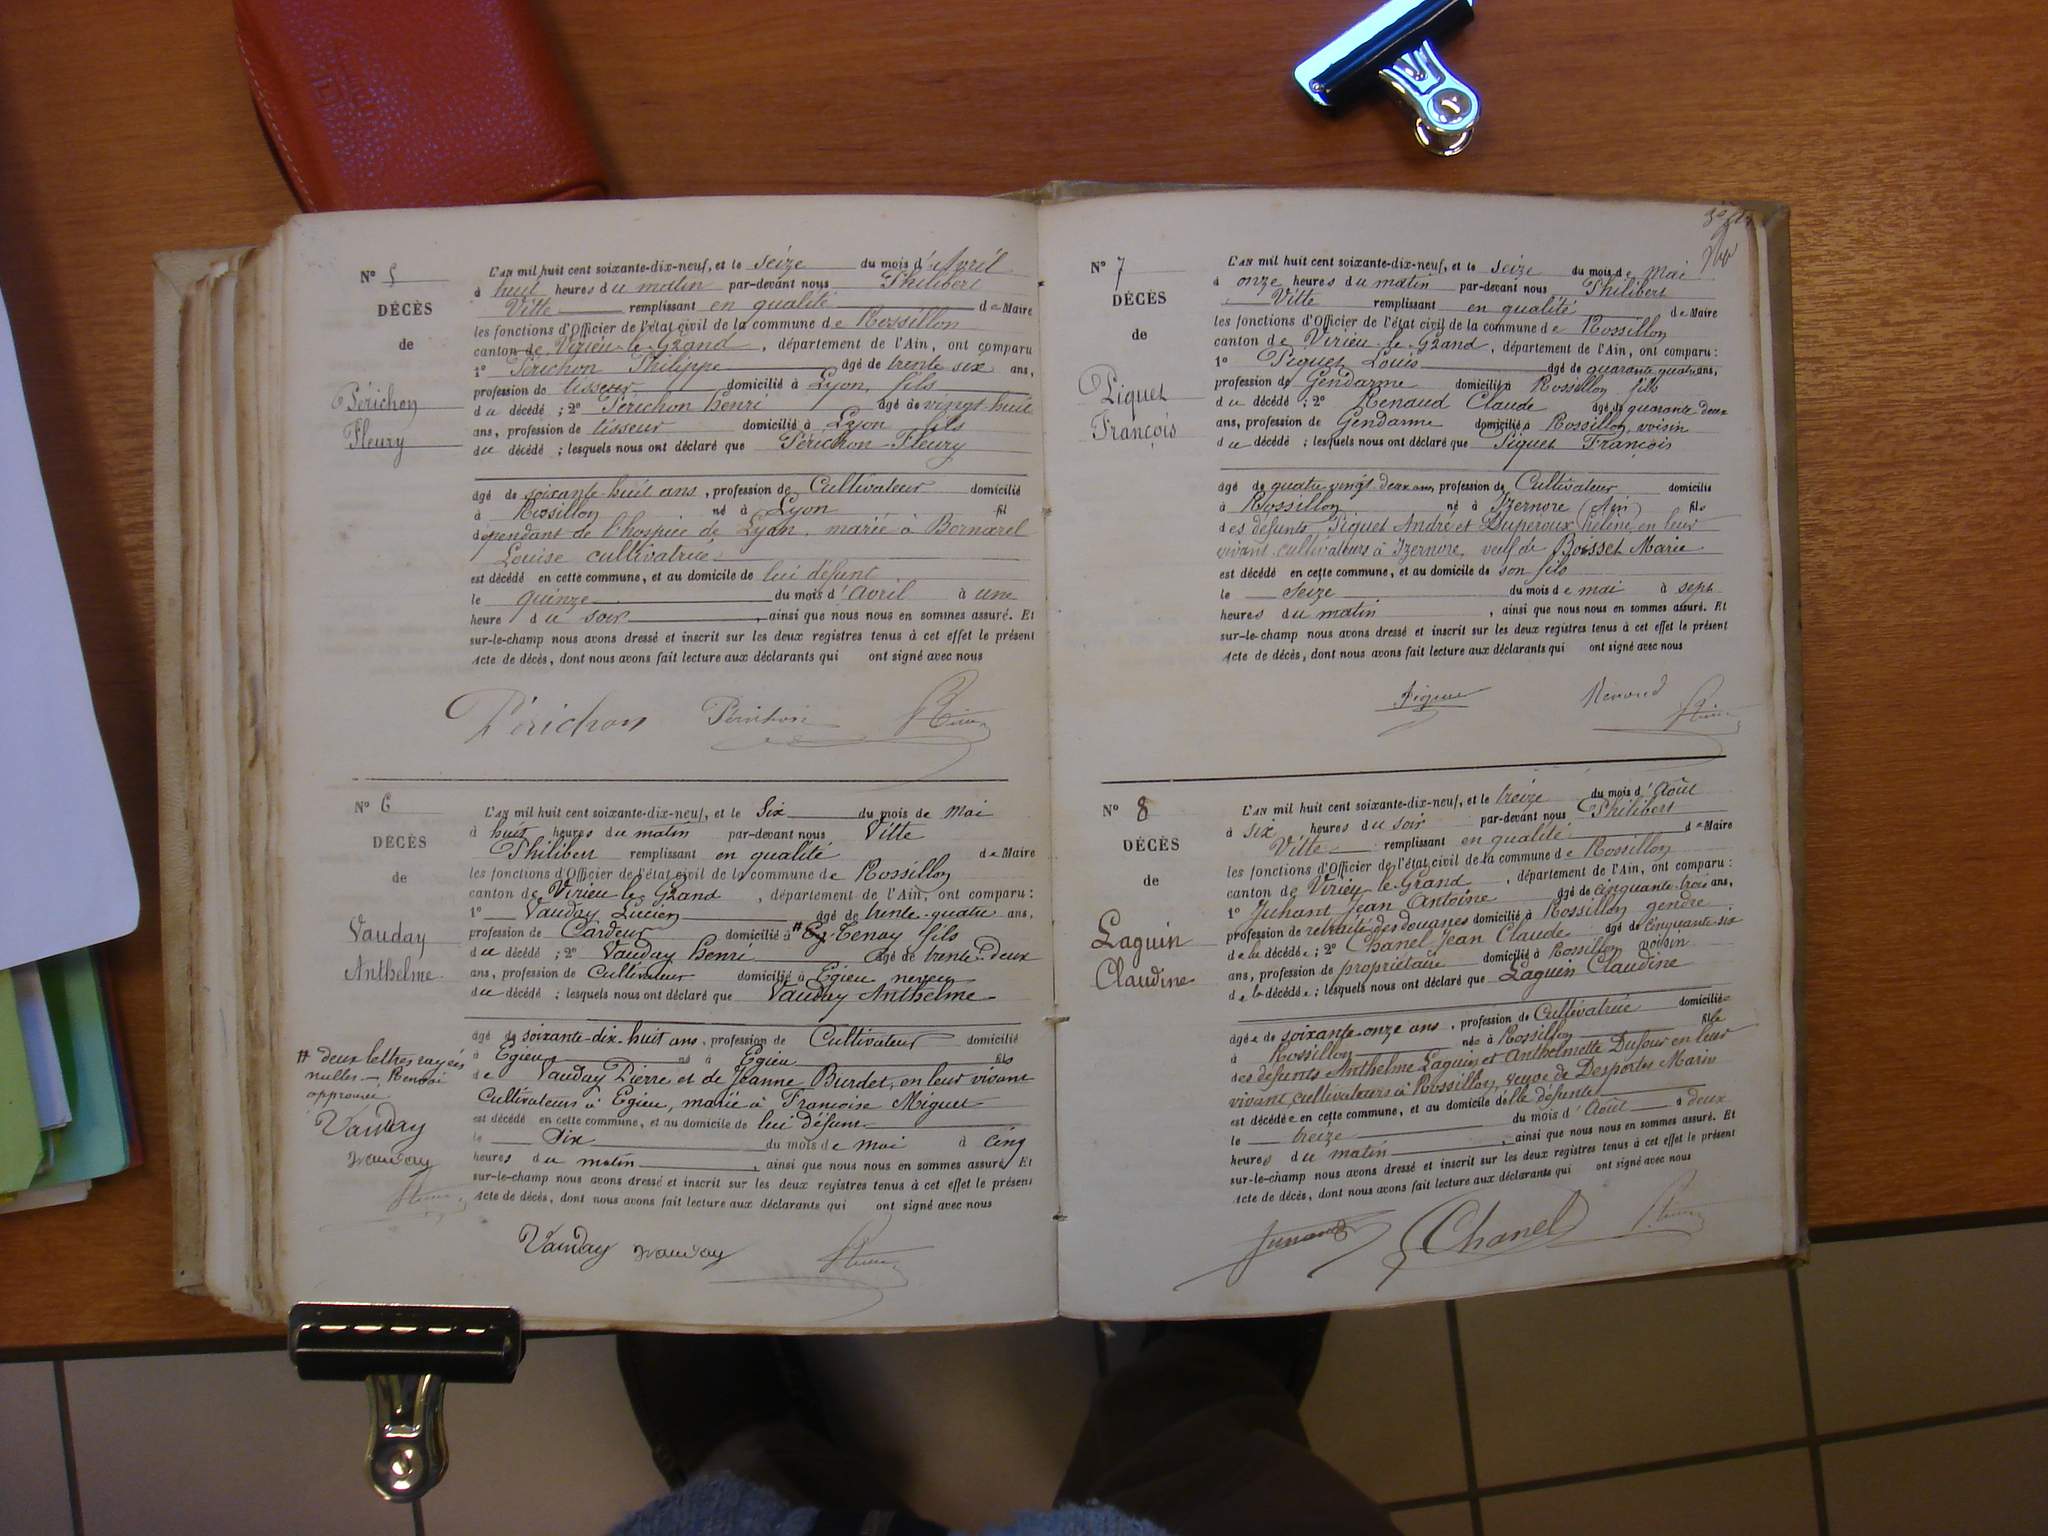 N° 5
DÉCÈS
de
Périchon
Fleury
L'AN mil huit cent soixante-dix-neuf, et le seize du mois d'Avril
à huit heures du matin par-devant nous Philibert
Vitte remplissant en qualité de Maire
les fonctions d'Officier de l'état civil de la commune de Rossillon
canton de Virieu-le-Grand, département de l'Ain, ont comparu
1° Périchon Philippe âgé de trente six ans,
profession de tisseur domicilié à Lyon, fils
du décédé ; 2° Périchon henri âgé de vingt-huit
ans, profession de tisseur domicilié à Lyon fils
du décédé ; lesquels nous ont déclaré que Périchon Fleury
âgé de soixante-huit ans, profession de Cultivateur domicilié
à Rossillon né à Lyon fil
dépendant de l'hospice de Lyon, marié à Bornarel
Louise cultivatrice
est décédé en cette commune, et au domicile de lui défunt
le quinze du mois d'Avril à une
heure du soir, ainsi que nous nous en sommes assuré. Et
sur-le-champ nous avons dressé et inscrit sur les deux registres tenus à cet effet le présent
acte de décès, dont nous avons fait lecture aux déclarants qui ont signé avec nous
Périchon Périchon
N° 6
DÉCÈS
de
Vauday
Anthelme
L'AN mil huit cent soixante-dix-neuf, et le Six du mois de Mai
à huit heures du matin par-devant nous Vitte
Philibert remplissant en qualité de Maire
les fonctions d'Officier de l'état civil de la commune de Rossillon
canton de Virieu-le-Grand, département de l'Ain, ont comparu :
1° Vauday Lucien âgé de trente-quatre ans,
profession de Cardeur domicilié à # Tenay fils
du décédé ; 2° Vauday henri âgé de trente-deux
ans, profession de Cultivateur domicilié à Egieu neveu
du décédé ; lesquels nous ont déclaré que Vauday Anthelme
âgé de soixante-dix-huit ans, profession de Cultivateur domicilié
à Egieu né à Egieu fils
de Vauday Pierre et de Jeanne Burdet, en leur vivant
Cultivateurs à Egieu, marié à Françoise Miguet
est décédé en cette commune, et au domicile de lui défunt
le Six du mois de mai à cinq
heures du matin, ainsi que nous nous en sommes assuré. Et
sur-le-champ nous avons dressé et inscrit sur les deux registres tenus à cet effet le présent
acte de décès, dont nous avons fait lecture aux déclarants qui ont signé avec nous
# deux lettres rayées
nulles - Renvoi
approuvé
Vauday
Vauday
Vauday Vauday
N° 7
DÉCÈS
de
Piquet
François
L'AN mil huit cent soixante-dix-neuf, et le seize du mois de Mai
à onze heures du matin par-devant nous Philibert
Vitte remplissant en qualité de Maire
les fonctions d'Officier de l'état civil de la commune de Rossillon
canton de Virieu-le-Grand, département de l'Ain, ont comparu :
1° Piquet Louis âgé de quarante quatre ans,
profession de Gendarme domicilié à Rossillon fils
du décédé ; 2° Renaud Claude âgé de quarante deux
ans, profession de Gendarme domicilié à Rossillon, voisin
du décédé ; lesquels nous ont déclaré que Piquet François
âgé de quatre-vingt-deux ans, profession de Cultivateur domicilié
à Rossillon né à Izernore (Ain) fils
des défunts Piquet André et Duperoux hélène en leur
vivant cultivateurs à Izernore, veuf de Boisset Marie
est décédé en cette commune, et au domicile de son fils
le seize du mois de mai à sept
heures du matin, ainsi que nous nous en sommes assuré. Et
sur-le-champ nous avons dressé et inscrit sur les deux registres tenus à cet effet le présent
acte de décès, dont nous avons fait lecture aux déclarants qui ont signé avec nous
Piquet Renaud
N° 8
DÉCÈS
de
Laguin
Claudine
L'AN mil huit cent soixante-dix-neuf, et le treize du mois d'Août
à six heures du soir par-devant nous Philibert
Vitte remplissant en qualité de Maire
les fonctions d'Officier de l'état civil de la commune de Rossillon
canton de Virieu-le-Grand, département de l'Ain, ont comparu :
1° Juhant Jean Antoine âgé de cinquante-trois ans,
profession de retraité des douanes domicilié à Rossillon gendre
de la décédée ; 2° Chanel Jean Claude âgé de cinquante-six
ans, profession de propriétaire domicilié à Rossillon voisin
de la décédée ; lesquels nous ont déclaré que Laguin Claudine
âgée de soixante-onze ans, profession de Cultivatrice domiciliée
à Rossillon née à Rossillon fille
des défunts Anthelme Laguin et Anthelmette Dufour en leur
vivant cultivateurs à Rossillon, veuve de Desportes Marin
est décédée en cette commune, et au domicile d'elle défunte
le treize du mois d'Août à deux
heures du matin, ainsi que nous nous en sommes assuré. Et
sur-le-champ nous avons dressé et inscrit sur les deux registres tenus à cet effet le présent
acte de décès, dont nous avons fait lecture aux déclarants qui ont signé avec nous
Chanel